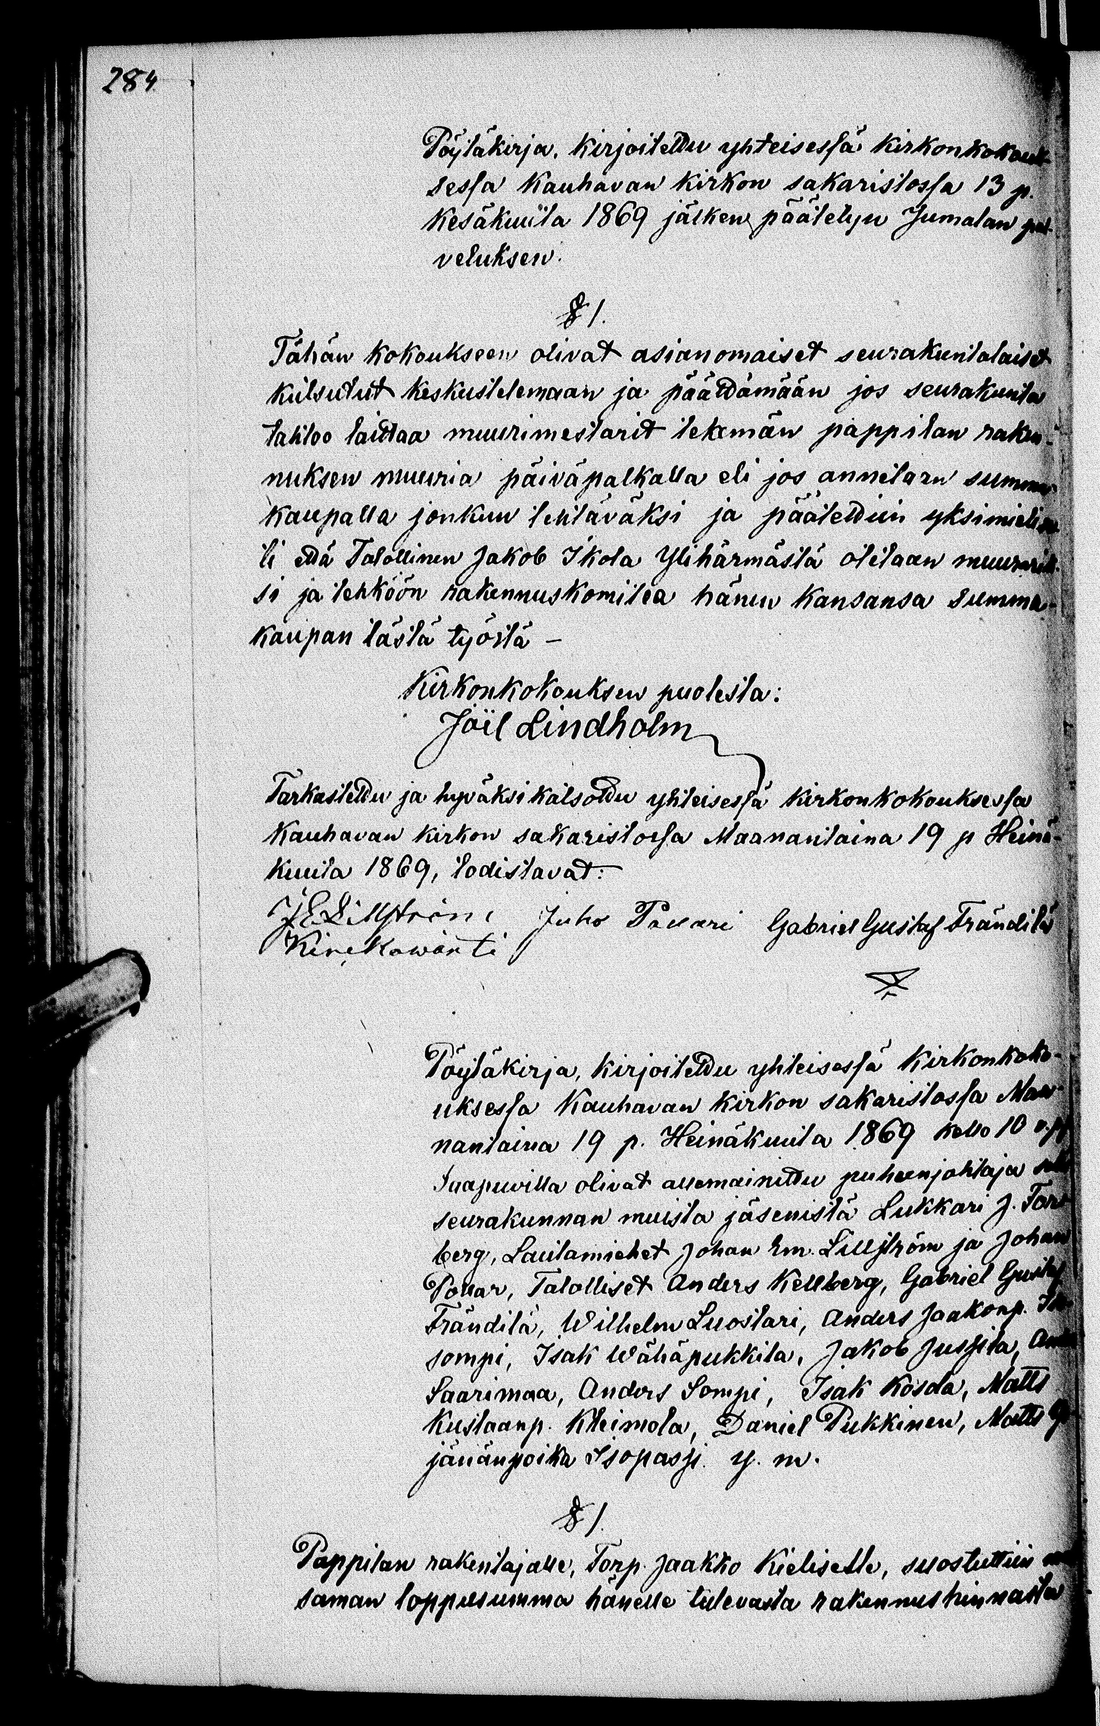 284
Pöytäkirja, kirjoitettu yhteisessä kirkonkokouk-
sessa Kauhavan kirkon sakaristossa 13 p.
Kesäkuuta 1869 jälken päätetyn Jumalan pal-
veluksen.
§ 1.
Tähän kokoukseen olivat asianomaiset seurakuntalaiset
kutsutut keskustelemaan ja päättämään jos seurakunta
tahtoo laittaa muurimestarit tekemän pappilan raken-
nuksen muuria päiväpalkalla eli jos annetaan summa
kaupalla jonkun tehtäväksi ja päätettiin yksimielise
ti että Talollinen Jakob Ikola Ylihärmästä otetaan muurarik
si ja tehköön rakennuskomitea hänen kansansa summa-
kaupan tästä työstä –
Kirkonkokouksen puolesta:
Joïl Lindholm
Tarkastettu ja hyväksi katsottu yhteisessä kirkonkokouksessa
Kauhavan kirkon sakaristossa Maanantaina 19 p Heinä-
kuuta 1869, todistavat:
J E Lillström Juho Pouari Gabriel Gustaf Frändilä
Kirckowärti
Pöytäkirja, kirjoitettu yhteisessä kirkonkoko-
uksessa Kauhavan kirkon sakaristossa Maa-
nantaina 19 p. Heinäkuuta 1869 kello 10 e.pp
Saapuvilla olivat allemainittu puheenjohtaja sekä
seurakunnan muista jäsenistä Lukkari J. Fors
berg, Lautamiehet Johan Em. Lillström ja Johan
Pouar, Talolliset Anders Kellberg, Gabriel Gustaf
Frändilä, Wilhelm Luostari, Anders Jaakonp. Iso
sompi, Isak Wähäpukkila, Jakob Jussila, Anders
Saarimaa, Anders Sompi, Isak Kosola, Matts
Kustaanp. Kleimola, Daniel Pukkinen, Matts
jänänpoika Isopassi y. m.
§ 1.
Pappilan rakentajalle, Torp. Jaakko Kieliselle, suostuttiin
saman loppusumma hänelle tulevasta rakennushinnasta